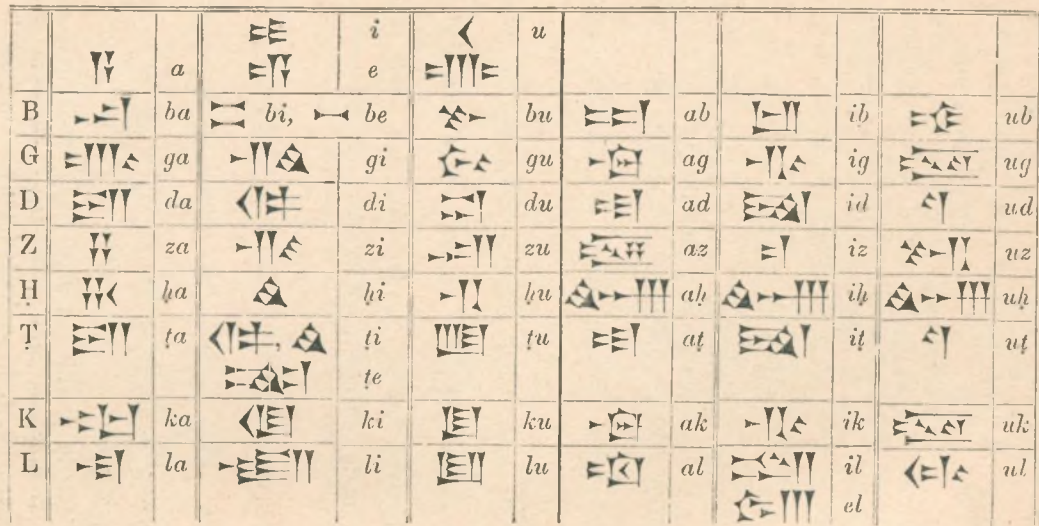 𒄿 i 𒌋 u
𒀀 a 𒂊 e 𒌑
B 𒁀 ba 𒁉 bi, 𒁁 be 𒁍 bu 𒀊 ab 𒅁 ib 𒌒 ub
G 𒂵 ga 𒄀 gi 𒄖 gu 𒀝 ag 𒅅 ig 𒊌 ug
D 𒁕 da 𒁲 di 𒁺 du 𒀜 ad 𒀉 id 𒌓 ud
Z 𒍝 za 𒍣 zi 𒍪 zu 𒊍 az 𒄑 iz 𒊻 uz
Ḥ 𒄩 ḥa 𒄭 ḥi 𒄷 ḥu 𒄴 aḥ 𒄴 iḥ 𒄴 uḥ
Ṭ 𒁕 ṭa 𒁲, 𒄭 ṭi 𒂅 ṭu 𒀜 aṭ 𒀉 iṭ 𒌓 uṭ
𒉈 ṭe
K 𒅗 ka 𒆠 ki 𒆪 ku 𒀝 ak 𒅅 ik 𒊌 uk
L 𒆷 la 𒇷 li 𒇻 lu 𒀠 al 𒅋 il 𒌌 ul
𒂖 el